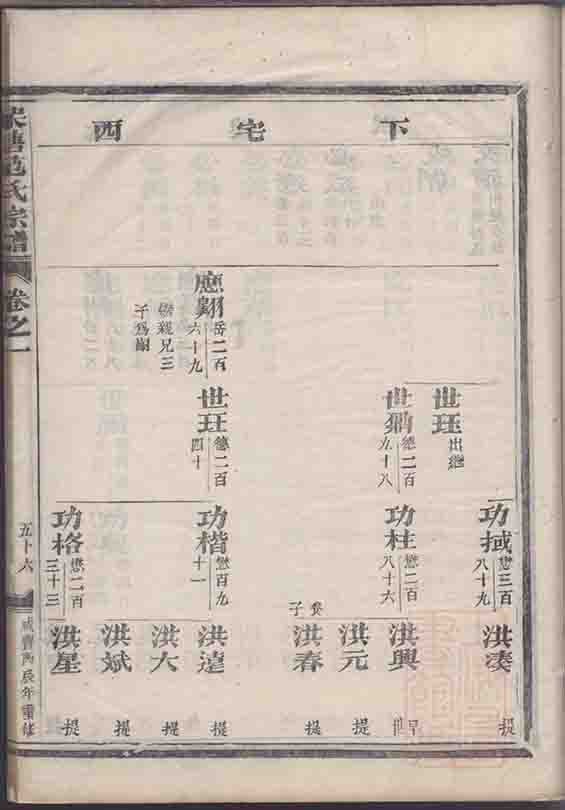 下宅西
世珏
出繼
功㧕
懋三百
八十九
洪湊
提
德二百
九十八
功柱
懋二百
八十六
洪興
早世
洪元
提
洪春
養子
提
應翾
岳二百
六十九
繼親兄三
子為嗣
世玨
德二百
四十
功楷
懋百九
十一
洪達
提
洪大
提
洪斌
提
功格
懋二百
三十三
洪星
提
范氏宗譜
卷之一
五十六
咸豐丙辰年重修